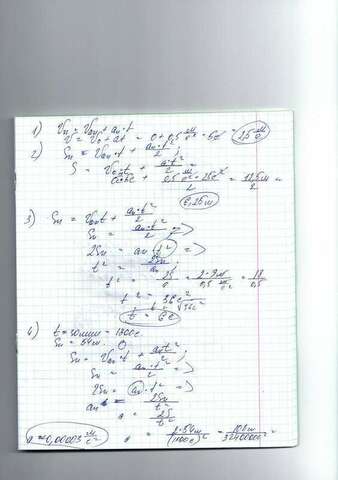 1) Vx = V₀x + aₓ·t
V = V₀ + at = 0 + 0,5 м/с² · 5с = 2,5 м/с
2) Sx = V₀x·t + aₓ·t²/2 ;
S = V₀·t + a·t²/2
0,5 · 25 / 2 = 12,5 м / 2
6,25 м
3) Sx = V₀xt + aₓ·t²/2
Sx = aₓ·t²/2 =>
2Sx = aₓ·t² =>
t² = 2Sx/aₓ
t² = 2S/a = 2·9м / 0,5 м/с² = 18/0,5
t² = 36 с²
t = √36с²
t = 6с
4) t = 30мин = 1800с.
Sx = 54м
Sx = V₀x·t + aₓt²/2 ;
Sx = aₓ·t²/2 =>
2Sx = aₓ·t² =>
aₓ = 2Sx/t²
a = 2S/t²
a = 2·54м / (1800с)² = 108м / 3240000с²
a ≈ 0,00003 м/с²